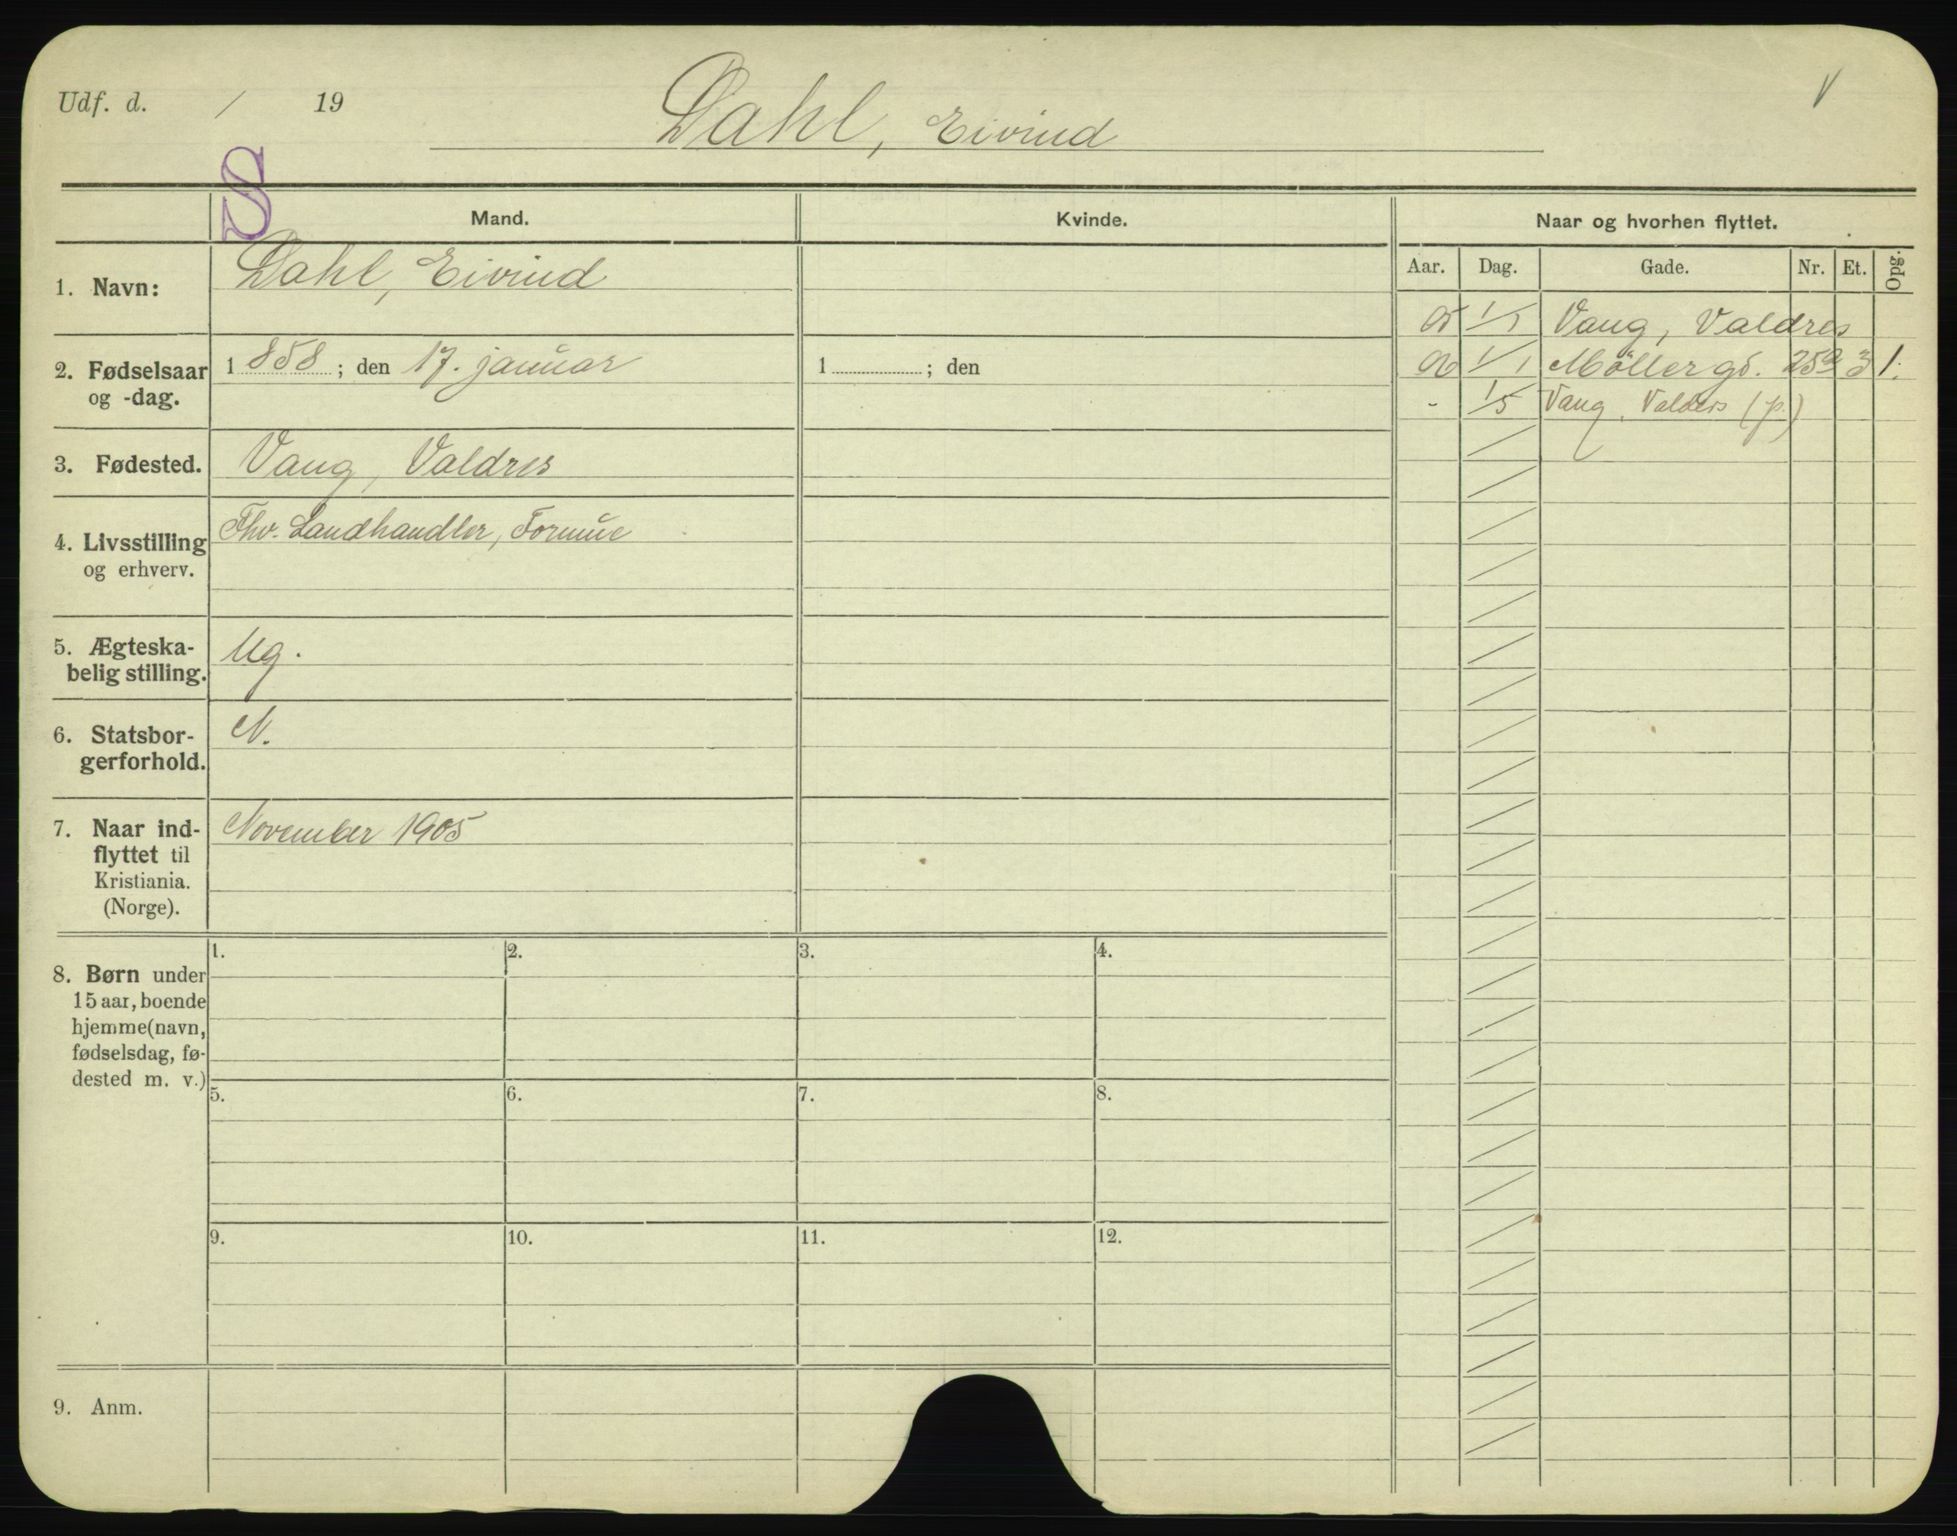 Udf. d. / 19
Dahl, Eivind
V
S
Mand.
Kvinde.
Naar og hvorhen flyttet.
Aar. Dag. Gade. Nr. Et. Opg.
1. Navn: Dahl, Eivind
2. Fødselsaar og -dag.
1858; den 17. januar
1 ; den
3. Fødested. Vang, Valdres
4. Livsstilling og erhverv.
Fhv. Landhandler, Formue
5. Ægteska-
belig stilling.
Ug.
6. Statsbor-
gerforhold.
N.
7. Naar ind-
flyttet til
Kristiania.
(Norge).
November 1905
8. Børn under
15 aar, boende
hjemme (navn,
fødselsdag, fø-
dested m. v.)
1. 2. 3. 4.
5. 6. 7. 8.
9. 10. 11. 12.
9. Anm.
05 1/1 Vang, Valdres
06 1/1 Möllergd. 25a 3 1.
- 1/5 Vang, Valders (p.)